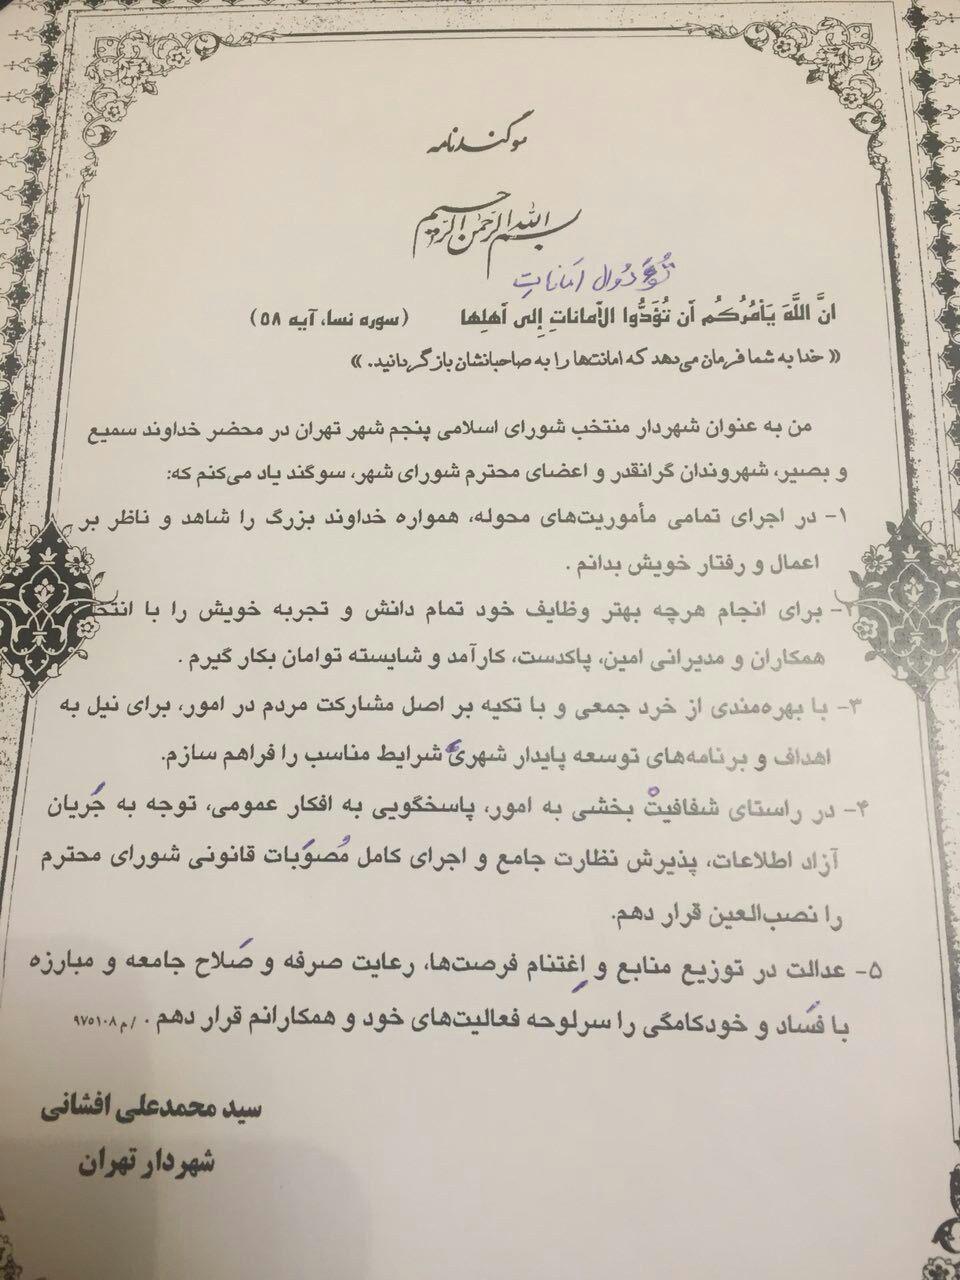 سوگندنامه
بسم الله الرحمن الرحیم
تُؤَدّول اَمَاناتِ
انَّ اللَّهَ یَأمُرُکُم أن تُؤَدُّوا الأماناتِ إلی أهلِها (سوره نسا، آیه ۵۸)
« خدا به شما فرمان می‌دهد که امانتها را به صاحبانشان بازگردانید. »
من به عنوان شهردار منتخب شورای اسلامی پنجم شهر تهران در محضر خداوند سمیع
و بصیر، شهروندان گرانقدر و اعضای محترم شورای شهر، سوگند یاد می‌کنم که:
۱- در اجرای تمامی مأموریت‌های محوله، همواره خداوند بزرگ را شاهد و ناظر بر
اعمال و رفتار خویش بدانم .
۲- برای انجام هرچه بهتر وظایف خود تمام دانش و تجربه خویش را با
همکاران و مدیرانی امین، پاکدست، کارآمد و شایسته توامان بکار گیرم .
۳- با بهره‌مندی از خرد جمعی و با تکیه بر اصل مشارکت مردم در امور، برای نیل به
اهداف و برنامه‌های توسعه پایدار شهری شرایط مناسب را فراهم سازم.
۴- در راستای شفافیتْ بخشی به امور، پاسخگویی به افکار عمومی، توجه به جَریان
آزاد اطلاعات، پذیرش نظارت جامع و اجرای کامل مُصوَبات قانونی شورای محترم
را نصب‌العین قرار دهم.
۵- عدالت در توزیع منابع و اِغتنام فرصت‌ها، رعایت صرفه و صَلاح جامعه و مبارزه
با فَساد و خودکامگی را سرلوحه فعالیت‌های خود و همکارانم قرار دهم . /م ۹۷۵۱۰۸
سید محمدعلی افشانی
شهردار تهران